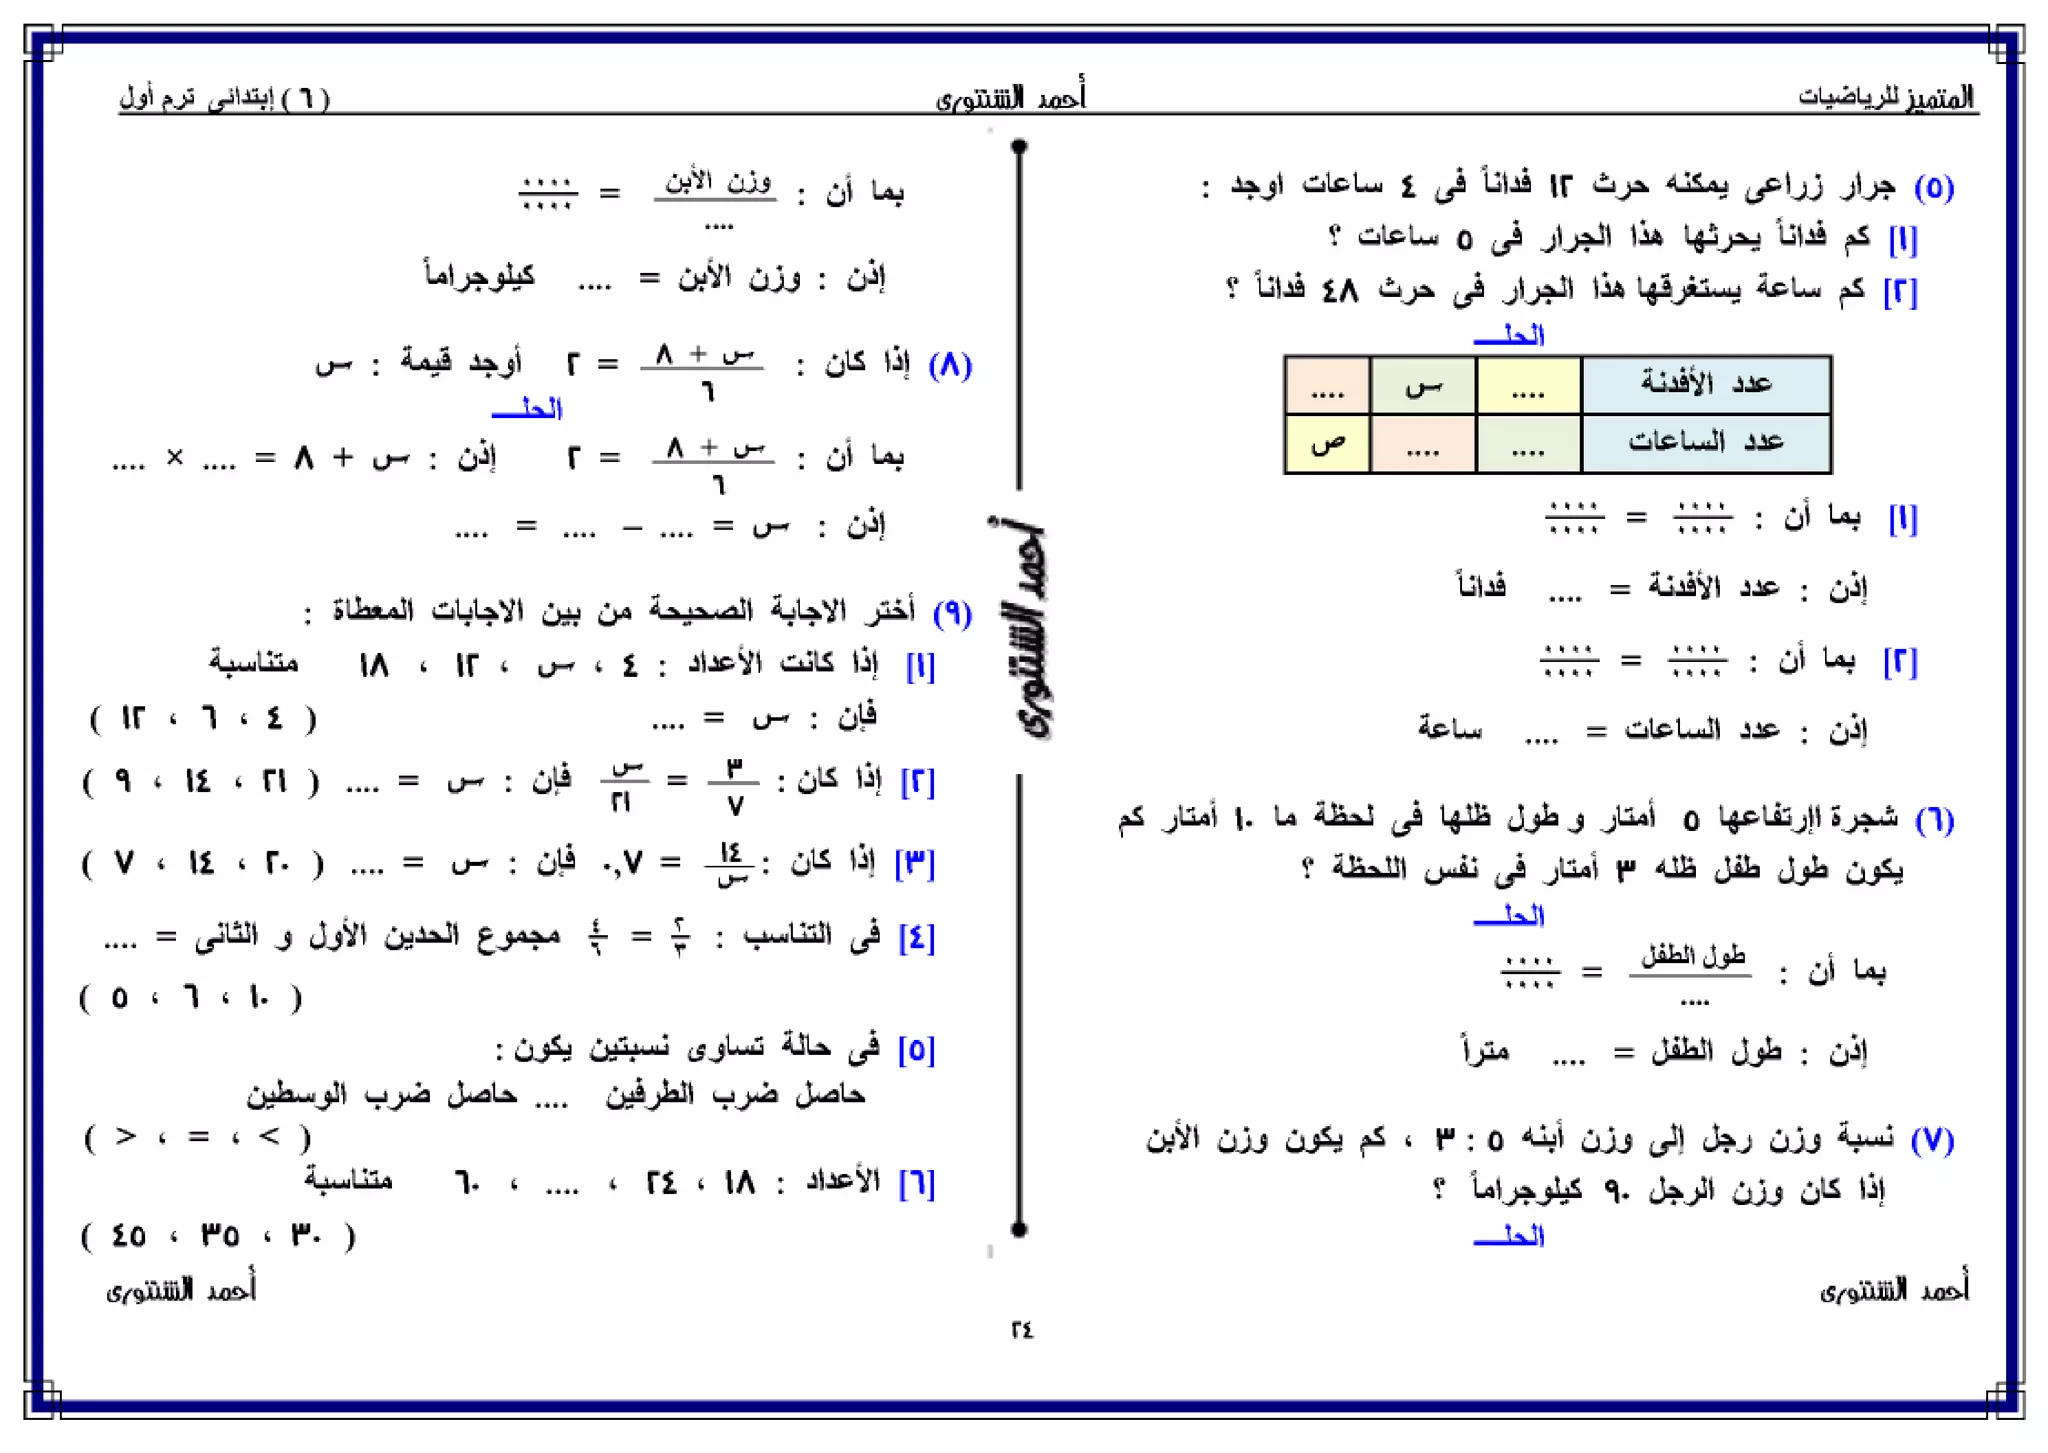 المتميز للرياضيات
أحمد الشنتورى
( ٦ ) إبتدائى ترم أول
(٥) جرار زراعى يمكنه حرث ١٢ فداناً فى ٤ ساعات اوجد :
[١] كم فداناً يحرثها هذا الجرار فى ٥ ساعات ؟
[٢] كم ساعة يستغرقها هذا الجرار فى حرث ٤٨ فداناً ؟
الحلــــ
عدد الأفدنة .... س ....
عدد الساعات .... .... ص
[١] بما أن : ..../.... = ..../....
إذن : عدد الأفدنة = .... فداناً
[٢] بما أن : ..../.... = ..../....
إذن : عدد الساعات = .... ساعة
(٦) شجرة اإرتفاعها ٥ أمتار و طول ظلها فى لحظة ما ١٠ أمتار كم
يكون طول طفل ظله ٣ أمتار فى نفس اللحظة ؟
الحلــــ
بما أن : طول الطفل/.... = ..../....
إذن : طول الطفل = .... متراً
(٧) نسبة وزن رجل إلى وزن أبنه ٥ : ٣ ، كم يكون وزن الأبن
إذا كان وزن الرجل ٩٠ كيلوجراماً ؟
الحلــــ
أحمد الشنتورى
أحمد الشنتورى
بما أن : وزن الأبن/.... = ..../....
إذن : وزن الأبن = .... كيلوجراماً
(٨) إذا كان : س + ٨/٦ = ٢ أوجد قيمة : س
الحلــــ
بما أن : س + ٨/٦ = ٢ إذن : س + ٨ = .... × ....
إذن : س = .... – .... = ....
(٩) أختر الاجابة الصحيحة من بين الاجابات المعطاة :
[١] إذا كانت الأعداد : ٤ ، س ، ١٢ ، ١٨ متناسبة
فإن : س = .... ( ٤ ، ٦ ، ١٢ )
[٢] إذا كان : ٣/٧ = س/٢١ فإن : س = .... ( ٢١ ، ١٤ ، ٩ )
[٣] إذا كان : ١٤/س = ٠,٧ فإن : س = .... ( ٢٠ ، ١٤ ، ٧ )
[٤] فى التناسب : ٢/٣ = ٤/٦ مجموع الحدين الأول و الثانى = ....
( ١٠ ، ٦ ، ٥ )
[٥] فى حالة تساوى نسبتين يكون :
حاصل ضرب الطرفين .... حاصل ضرب الوسطين
( > ، = ، < )
[٦] الأعداد : ١٨ ، ٢٤ ، .... ، ٦٠ متناسبة
( ٣٠ ، ٣٥ ، ٤٥ )
أحمد الشنتورى
٢٤